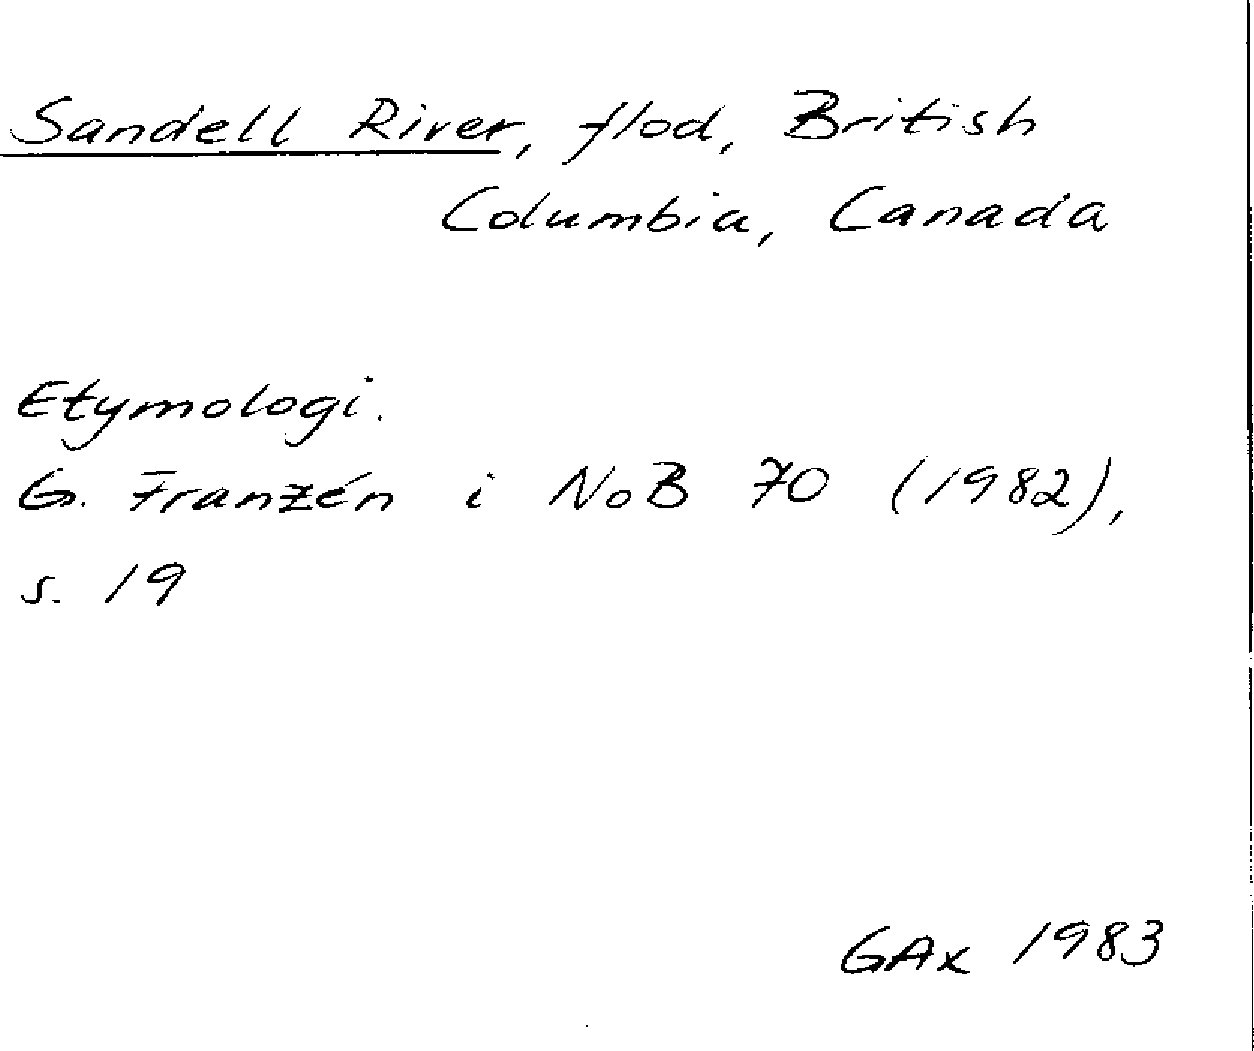 Sandell River, flod, British
Columbia, Canada
Etymologi.
G. Franzén i NoB 70 (1982),
s. 19
GAx 1983